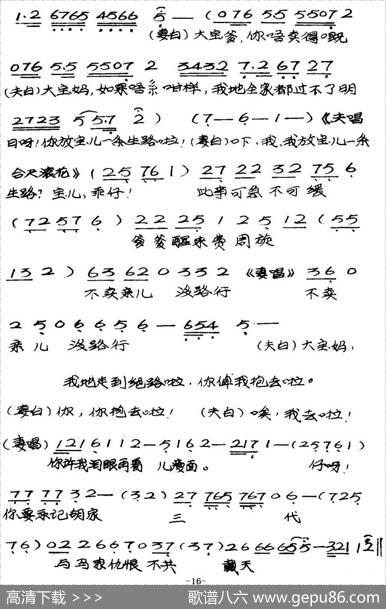 1·2 6765 4566 5 — ( 076 55 5507 2
(妻白) 大宝爹，你唔卖得㗎
076 5·5 5507 2 3432 7·2 67 27
(夫白) 大宝妈，如果唔系咁样，我地全家都过不了明
2723 5 5·7 2 ) (7—6—1—)《夫唱
日呀！你放宝儿一条生路啦！(妻白) 吓，我，我放宝儿一条
合尺滚花》( 25 76 1 ) 27 22 32 75 6
生路？宝儿，乖仔！ 此事可急不可缓
( 72 57 6 ) 22 25 1 2 5 12 ( 55
爹爹 周旋
13 2 ) 63 62 0 3 3 2 《妻唱》 36 0
不卖亲儿 没路行 不卖
2 5 0 6 6 5 6 — 654 5 —
亲儿 没路行 (夫白) 大宝妈，
我地走到绝路啦，你俾我抱去啦。
(妻白) 你，你抱去啦！ (夫白) 唉，我去啦！
(妻唱) 1216 1 1 2 — 5 1 6 2 — 217 1 — ( 25 76 1 )
你许我泪眼再看 儿 面。 仔呀！
77 77 3 2 — ( 3 2 ) 27 765 767 0 6 — ( 725
你要永记胡家 三 代
76 ) 02 2 6 6 7 0 37 ( 37 ) 26 66 65 5 — 321 1 2
与冯家仇恨 不共 戴天
-16-
高清下载 >>>
歌谱八六 www.gepu86.com